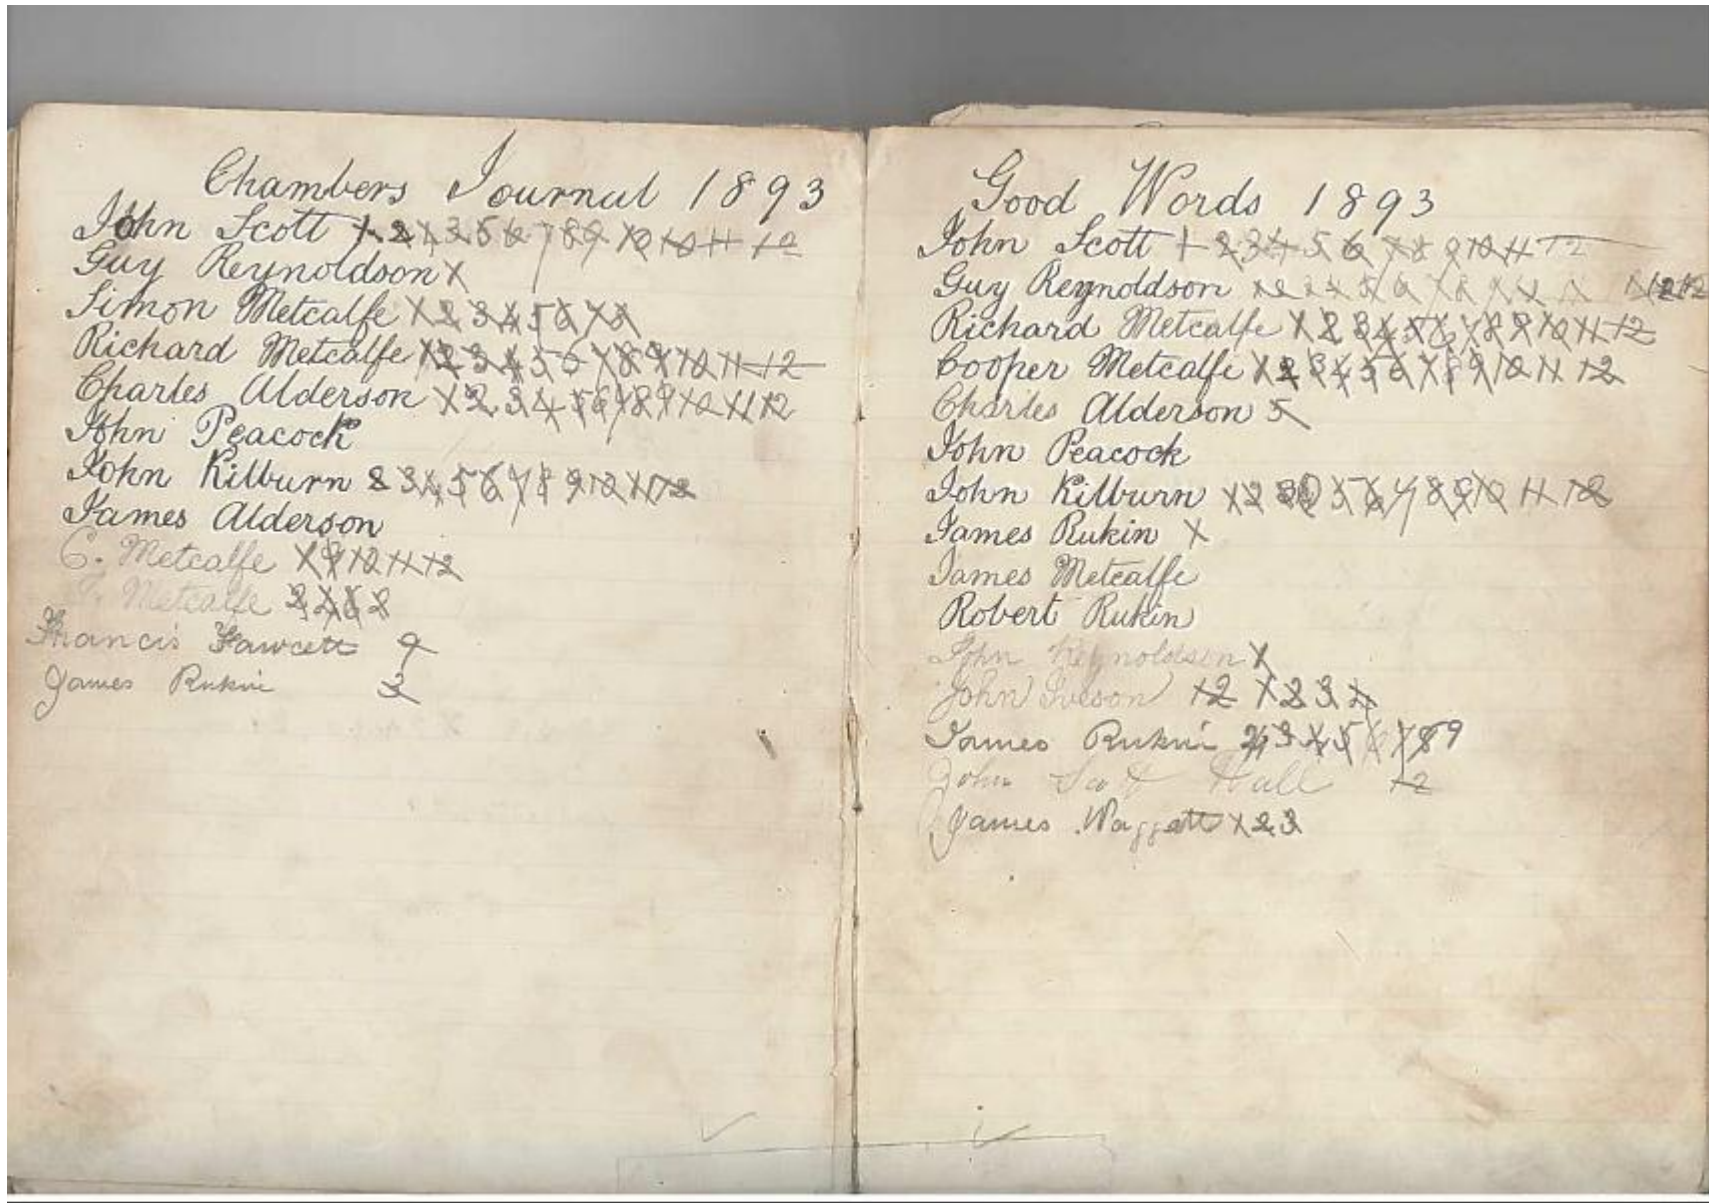 Chambers Journal 1893
John Scott 1 2 4 3 5 6 7 8 9 10 10 11 12
Guy Reynoldson 1
Simon Metcalfe 1 2 3 4 5 6 7 8
Richard Metcalfe 1 2 3 4 5 6 7 8 9 10 11 12
Charles Alderson 1 2 3 4 5 6 7 8 9 10 11 12
John Peacock
John Kilburn 2 3 4 5 6 7 8 9 10 11 12
James Alderson
C. Metcalfe 1 9 10 11 12
Metcalfe
Francis Fawcett 9
James Rukin 3
Good Words 1893
John Scott 1 2 3 4 5 6 7 8 9 10 11 12
Guy Reynoldson
Richard Metcalfe 1 2 3 4 5 6 7 8 9 10 11 12
Cooper Metcalfe 1 2 3 4 5 6 7 8 9 10 11 12
Charles Alderson 5
John Peacock
John Kilburn 1 2 3 5 6 7 8 9 10 11 12
James Rukin 1
James Metcalfe
Robert Rukin
John Reynoldson 1
John Iveson 12 1 2 3 4
James Rukin 3 4 5 6 7 8 9
John Scott Hall 12
James Waggett 1 2 3